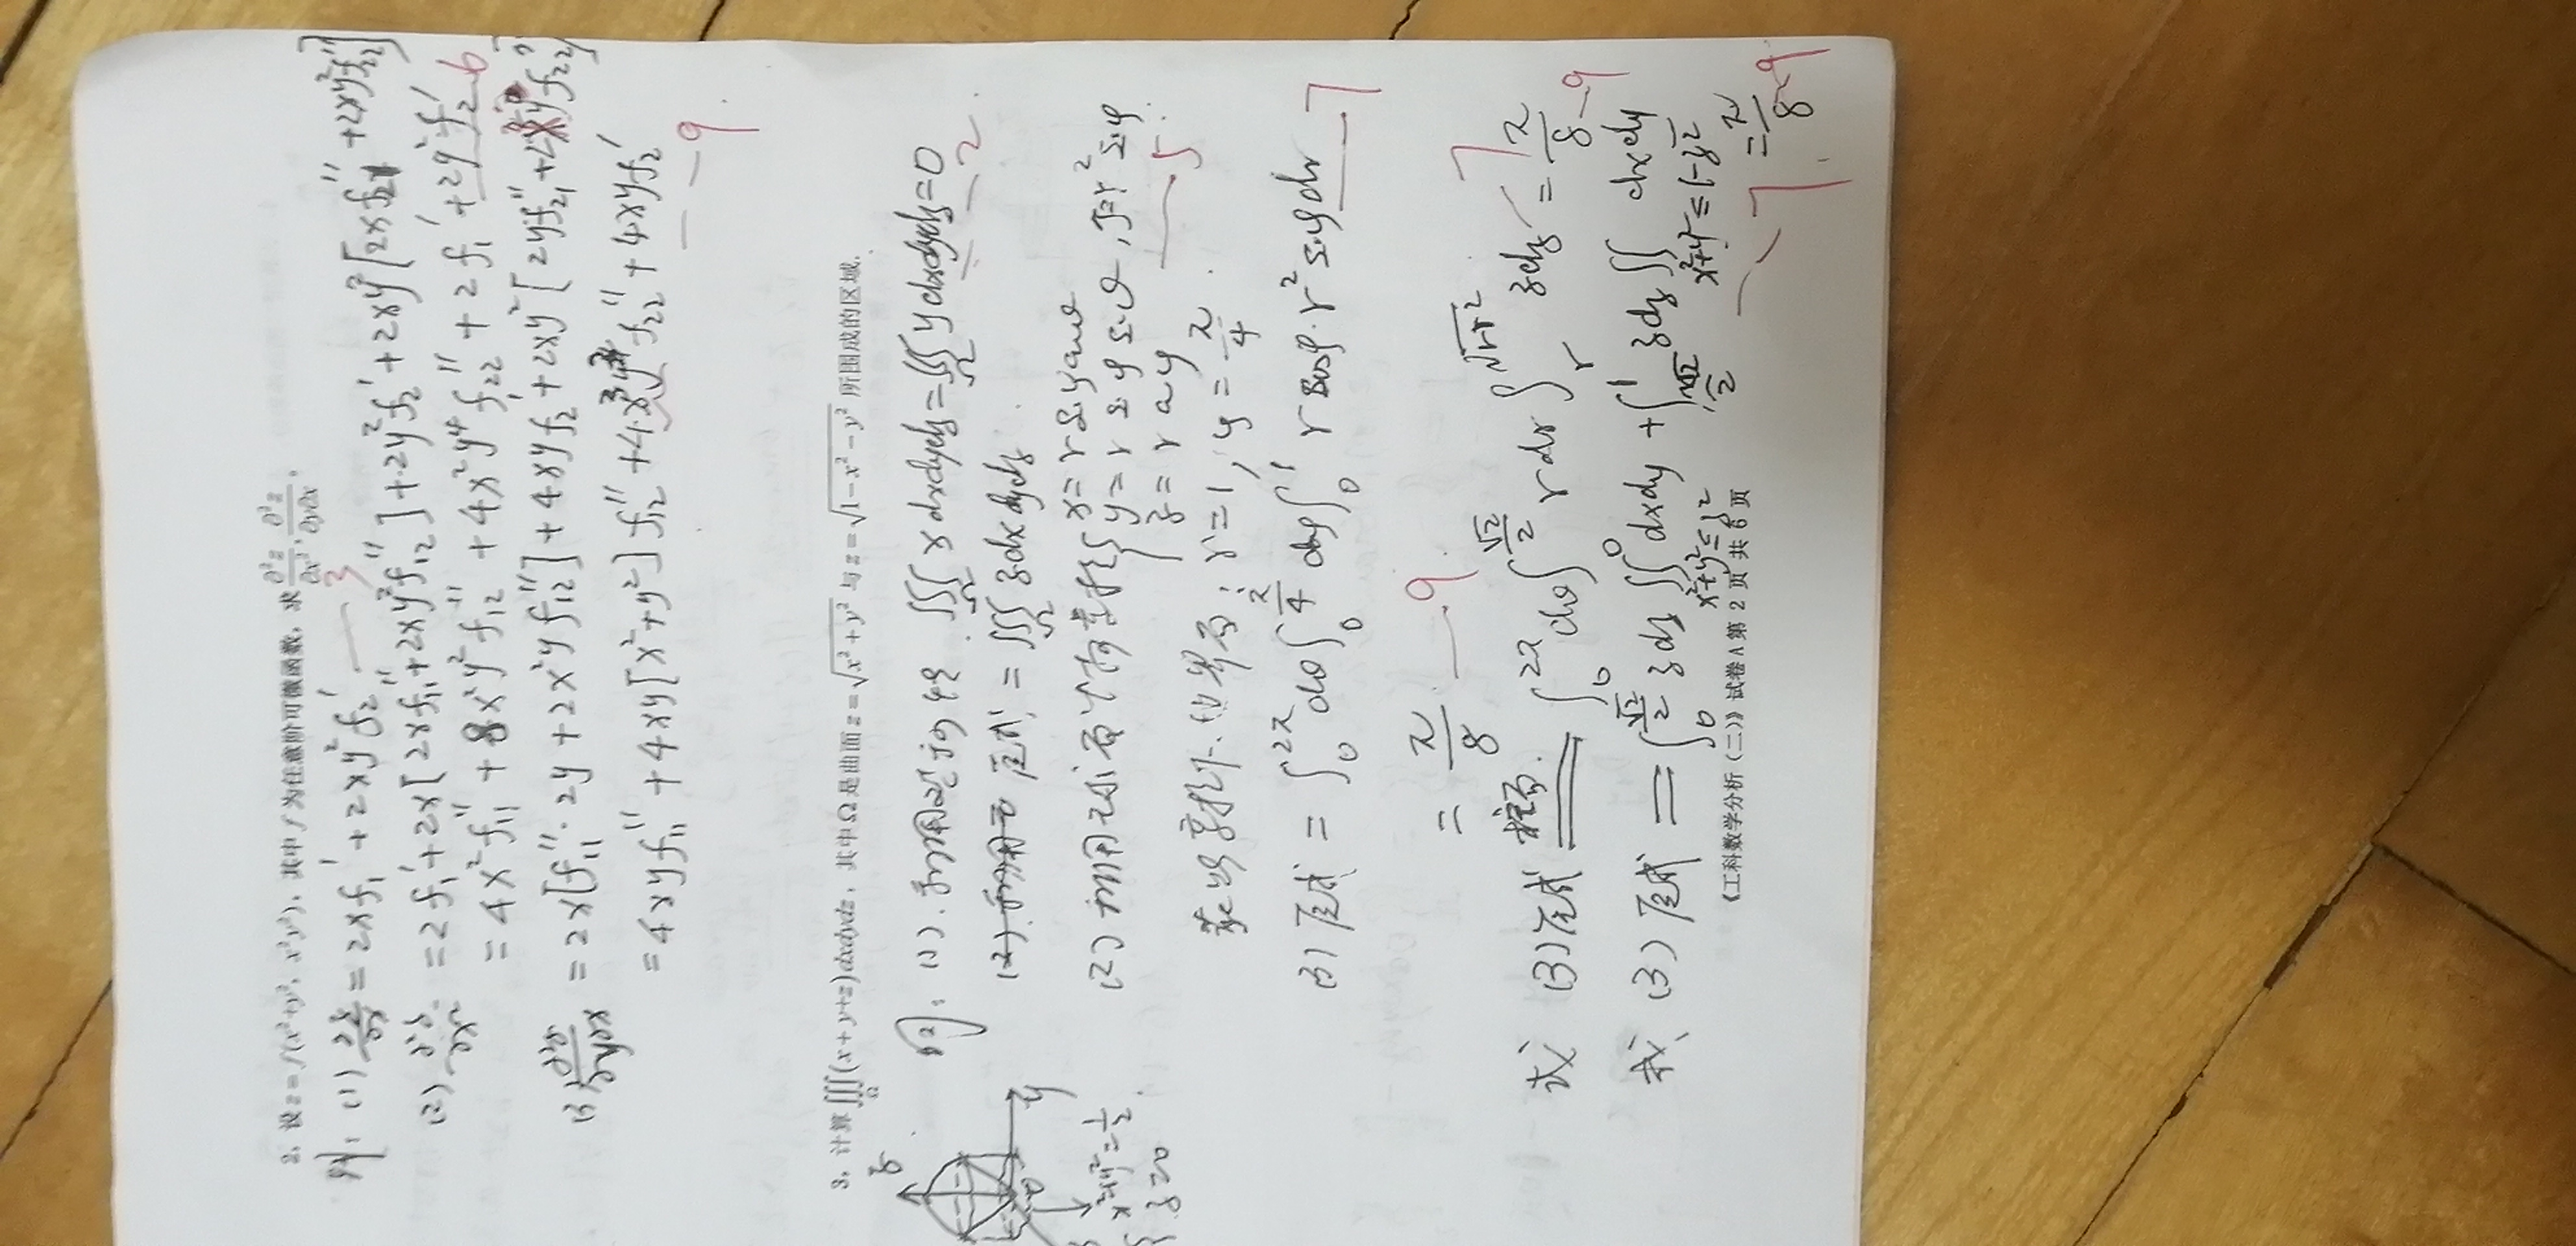 2、设 z = f(x²+y², x²y²), 其中 f 为任意阶可微函数, 求 ∂²z/∂x², ∂²z/∂y∂x。
解: (1) ∂z/∂x = 2xf₁′ + 2xy²f₂′ — 3
(2) ∂²z/∂x² = 2f₁′ + 2x[2xf₁₁″ + 2xy²f₁₂″] + 2y²f₂′ + 2xy²[2xf₂₁″ + 2xy²f₂₂″]
= 4x²f₁₁″ + 8x²y²f₁₂″ + 4x²y⁴f₂₂″ + 2f₁′ + 2y²f₂′ — 6
(3) ∂²z/∂y∂x = 2x[f₁₁″·2y + 2x²yf₁₂″] + 4xyf₂′ + 2xy²[2yf₂₁″ + 2x²yf₂₂″]
= 4xyf₁₁″ + 4xy[x²+y²]f₁₂″ + 4x³y³f₂₂″ + 4xyf₂′
— 9
3、计算 ∭_Ω (x+y+z)dxdydz, 其中 Ω 是曲面 z = √(x²+y²) 与 z = √(1−x²−y²) 所围成的区域.
解: (1). 利用对称性 ∭_Ω xdxdydz = ∭_Ω ydxdydz = 0 — 2
原式 = ∭_Ω zdxdydz.
z
y
x²+y² = 1/2
z = 0
(2) 利用球面坐标 { x = r sinφ cosθ
y = r sinφ sinθ, J = r² sinφ.
z = r cosφ — 5
: r = 1, φ = π/4.
(3) 原式 = ∫₀^{2π} dθ ∫₀^{π/4} dφ ∫₀¹ r cosφ · r² sinφ dr — 7
= π/8. — 9
或 (3) 原式 柱面 = ∫₀^{2π} dθ ∫₀^{√2/2} rdr ∫_r^{√(1−r²)} zdz — 7 = π/8 — 9
或 (3) 原式 = ∫₀^{√2/2} zdz ∬_{x²+y²≤z²} dxdy + ∫_{√2/2}^1 zdz ∬_{x²+y²≤1−z²} dxdy
— 7. = π/8 — 9
《工科数学分析（二）》试卷 A 第 2 页 共 6 页